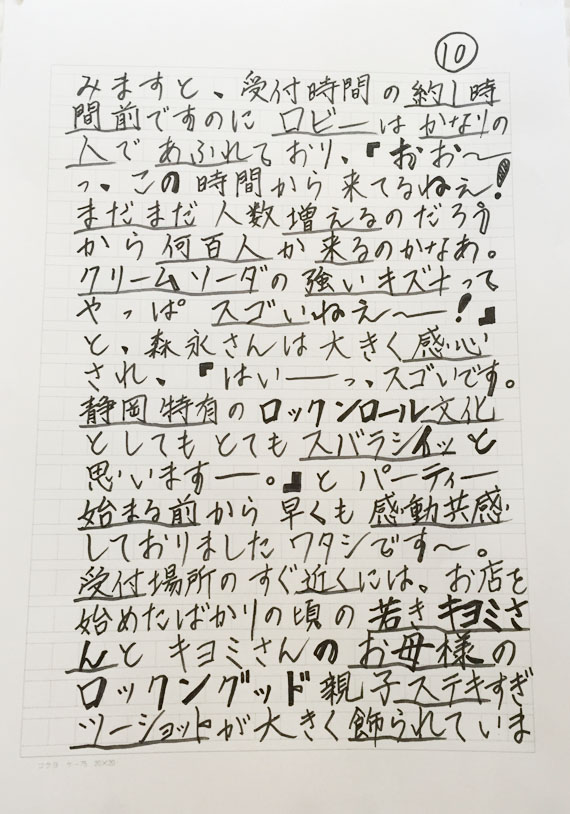 10
みますと、受付時間の約1時
間前ですのに ロビーは かなりの
人で あふれて おり、『おお〜
っ、この 時間から 来てるねえ!
まだまだ 人数 増えるのだろう
から 何百人 か 来るのかなあ。
クリームソーダの 強い キズナって
やっぱ スゴいねえ〜!』
と、森永さんは 大きく 感心
され、『はい――っ、スゴいです。
静岡 特有の ロックンロール 文化
としても とても スバラシイッ と
思います―。』と パーティー
始まる前から 早くも 感動共感
しておりました ワタシです〜。
受付場所の すぐ 近くには。お店を
始めたばかりの 頃の 若き キヨミさ
んと キヨミさんの お母様の
ロックングッド 親子 ステキすぎ
ツーショットが 大きく 飾られていま
コクヨ ケ-75 20×20